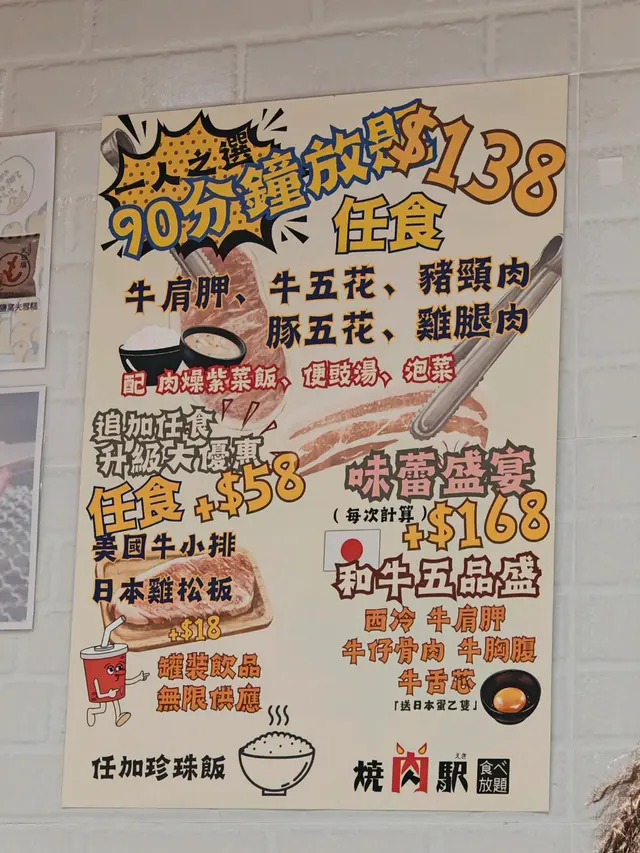 一人之選
90分鐘放題$138
任食
牛肩胛、牛五花、豬頸肉
豚五花、雞腿肉
配 肉燥紫菜飯、便豉湯、泡菜
追加任食
升級大優惠
任食 +$58
美國牛小排
日本雞松板
+$18
罐裝飲品
無限供應
任加珍珠飯
味蕾盛宴
(每次計算)+$168
和牛五品盛
西冷 牛肩胛
牛仔骨肉 牛胸腹
牛舌芯
「送日本蛋乙隻」
燒肉駅
えき
食べ
放題